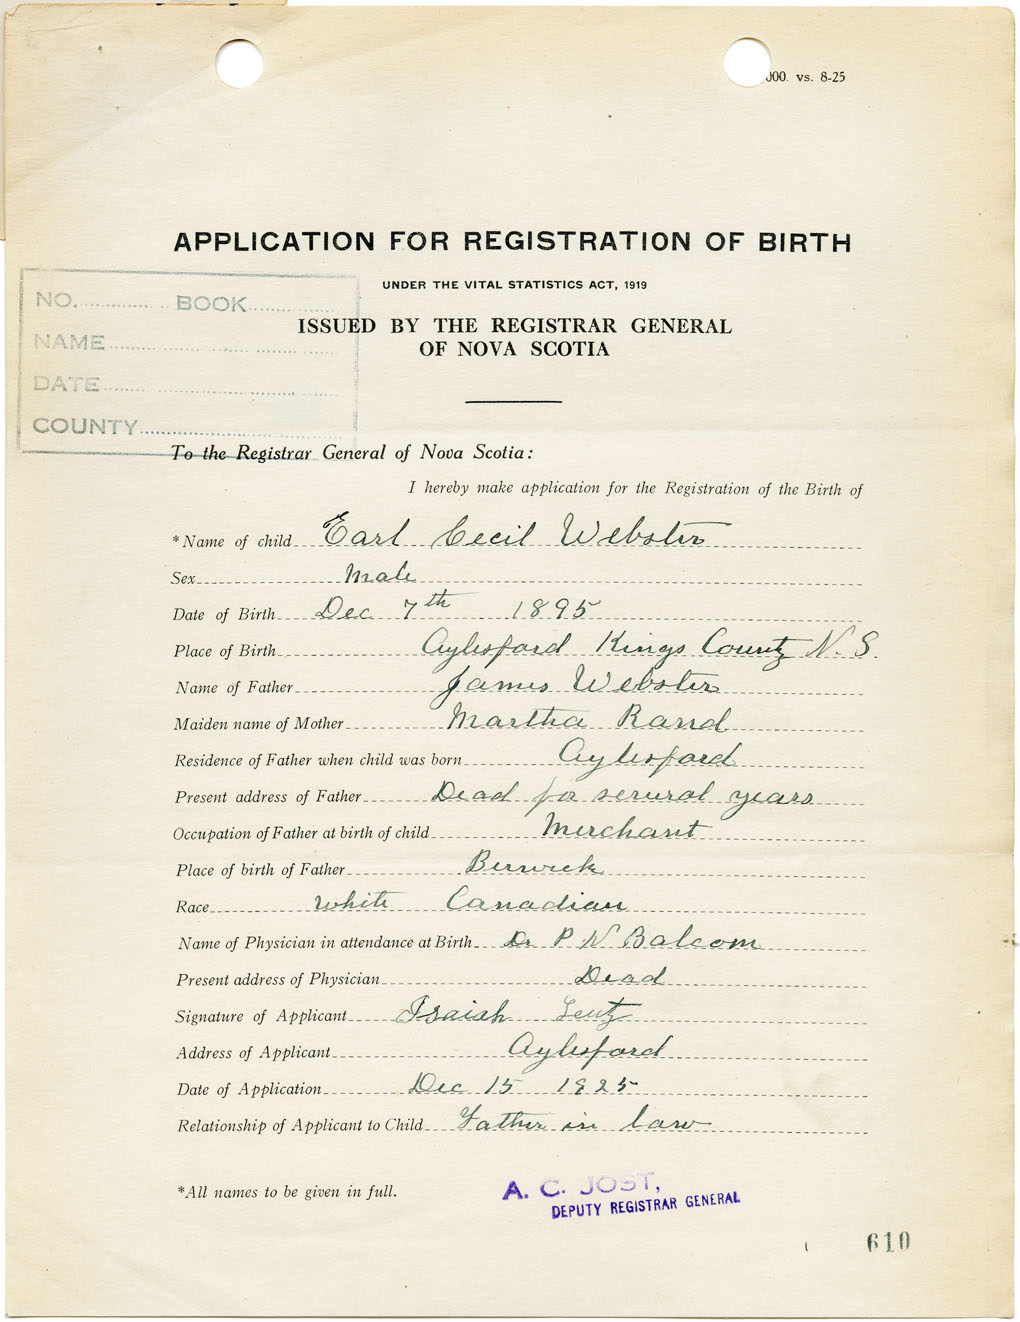 000. vs. 8-25
APPLICATION FOR REGISTRATION OF BIRTH
UNDER THE VITAL STATISTICS ACT, 1919
ISSUED BY THE REGISTRAR GENERAL
OF NOVA SCOTIA
NO. BOOK
NAME
DATE
COUNTY
To the Registrar General of Nova Scotia:
I hereby make application for the Registration of the Birth of
*Name of child Earl Cecil Webster
Sex Male
Date of Birth Dec 7th 1895
Place of Birth Aylesford Kings County N. S.
Name of Father James Webster
Maiden name of Mother Martha Rand
Residence of Father when child was born Aylesford
Present address of Father Dead for serural years
Occupation of Father at birth of child Merchant
Place of birth of Father Berwick
Race White Canadian
Name of Physician in attendance at Birth Dr P N Balcom
Present address of Physician Dead
Signature of Applicant Isaiah Lentz
Address of Applicant Aylesford
Date of Application Dec 15 1925
Relationship of Applicant to Child Father in law
*All names to be given in full.
A. C. JOST,
DEPUTY REGISTRAR GENERAL
610